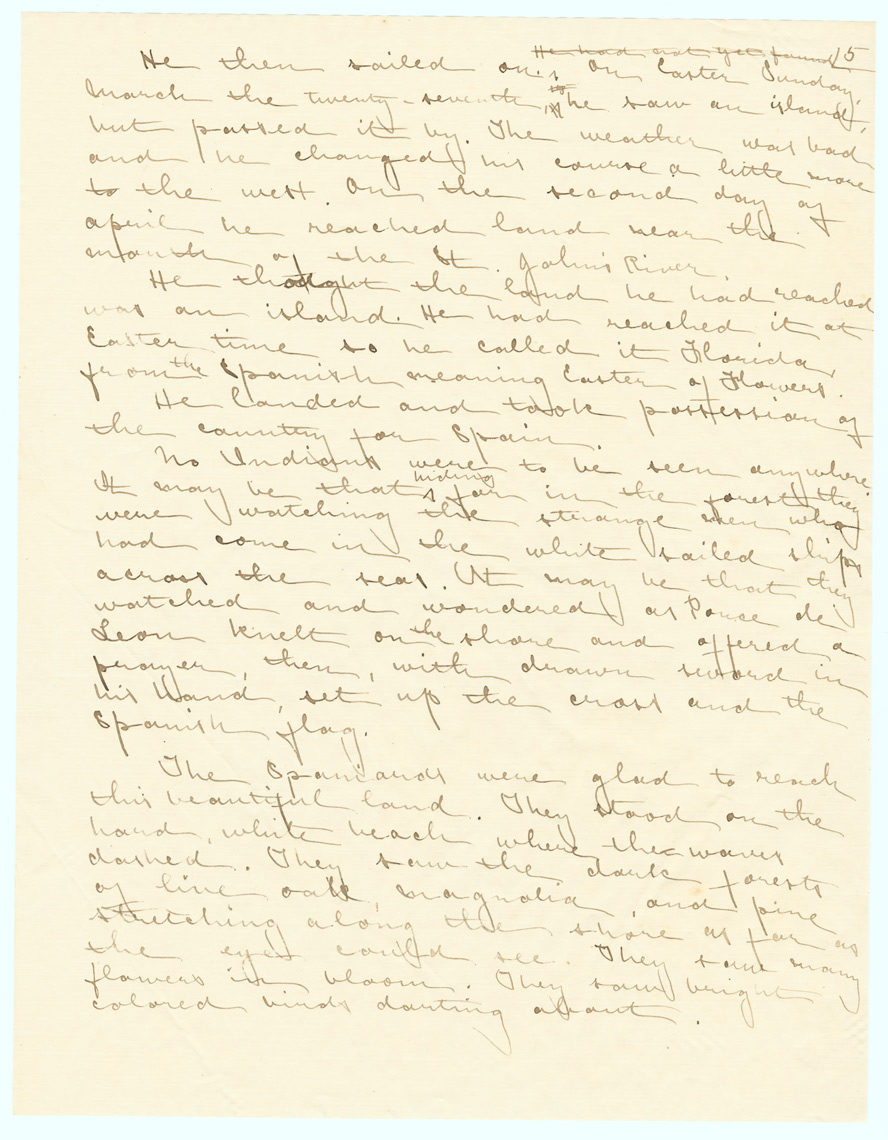 He had not yet found 15
He then sailed on. On Easter Sunday,
March the twenty-seventh, he saw an island,
but passed it by. The weather was bad
and he changed his course a little more
to the west. On the second day of
april he reached land near the
mouth of the St. John's River.
He thought the land he had reached
was an island. He had reached it at
Easter time so he called it Florida,
from the Spanish meaning Easter of Flowers.
He landed and took possession of
the country for Spain.
No Indians were to be seen anywhere.
It may be that hiding far in the forest they
were watching the strange men who
had come in the white sailed ships
across the seas. It may be that they
watched and wondered as Ponce de
Leon knelt on the shore and offered a
prayer, then, with drawn sword in
his hand, set up the cross and the
Spanish flag.
The Spaniards were glad to reach
this beautiful land. They stood on the
hard, white beach where the waves
dashed. They saw the dark forests
of live oak, magnolia, and pine
stretching along the shore as far as
the eyes could see. They saw many
flowers in bloom. They saw bright
colored birds darting about.